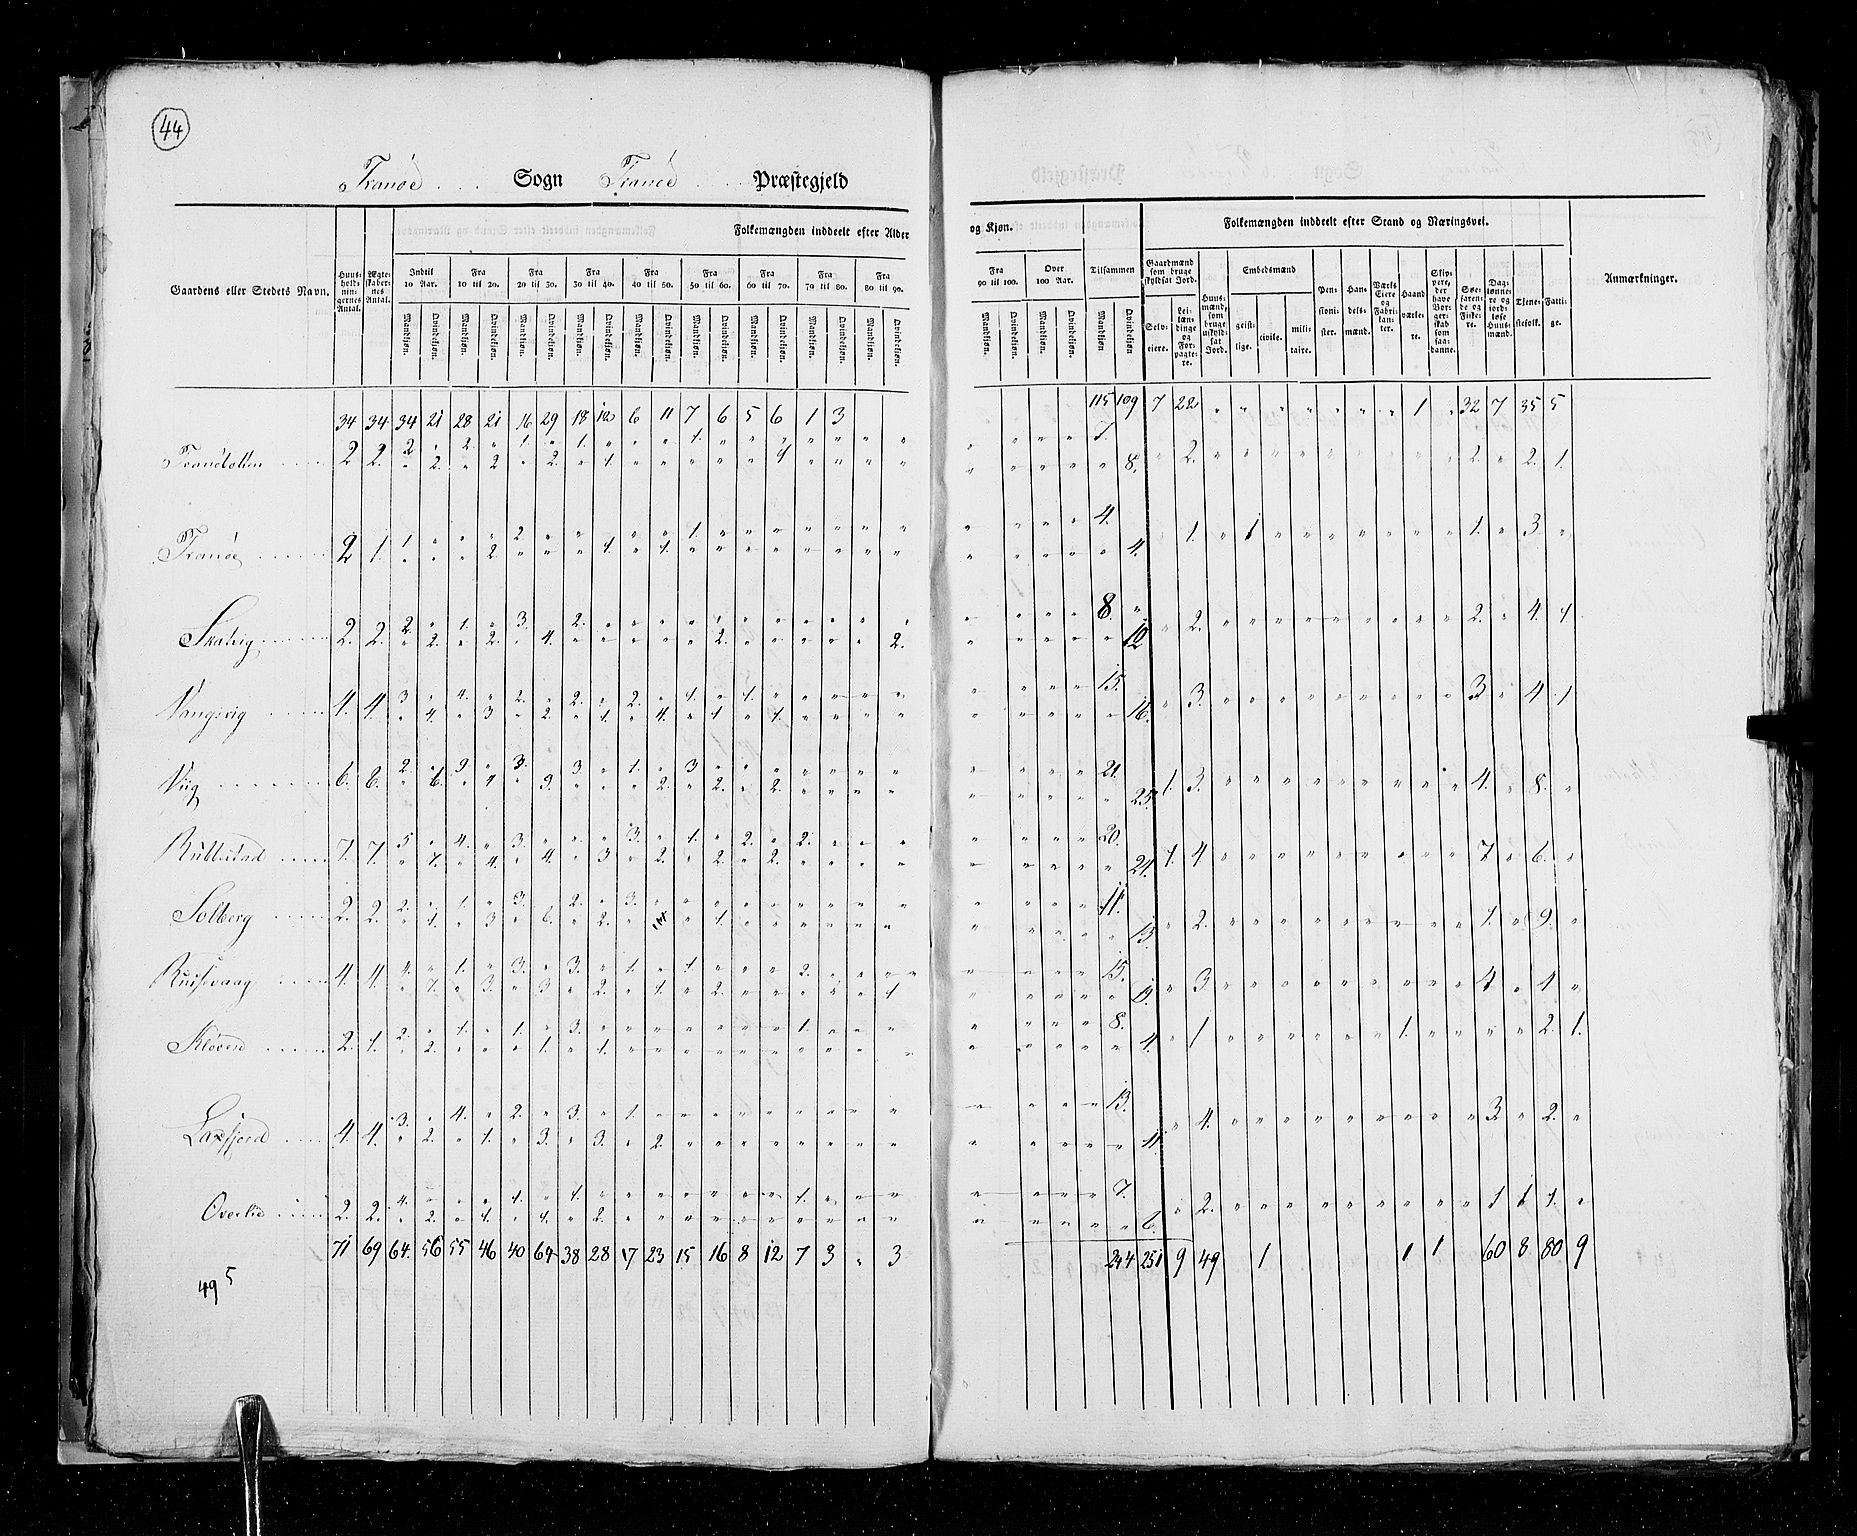 44
Tranöe Sogn Tranöe Præstegjeld
Folkemængden inddeelt efter Alder og Kjøn. Folkemængden inddeelt efter Stand og Næringsvei.
Gaardens eller Stedets Navn. Huus-holdningernes Antal. Ægteskabernes Antal. Indtil 10 Aar. Fra 10 til 20. Fra 20 til 30. Fra 30 til 40. Fra 40 til 50. Fra 50 til 60. Fra 60 til 70. Fra 70 til 80. Fra 80 til 90. Fra 90 til 100. Over 100 Aar. Tilsammen Gaardmænd som bruge skyldsat Jord. Embedsmænd Anmærkninger.
Mandkjøn. Qvindekjøn. Mandkjøn. Qvindekjøn. Mandkjøn. Qvindekjøn. Mandkjøn. Qvindekjøn. Mandkjøn. Qvindekjøn. Mandkjøn. Qvindekjøn. Mandkjøn. Qvindekjøn. Mandkjøn. Qvindekjøn. Mandkjøn. Qvindekjøn. Mandkjøn. Qvindekjøn. Mandkjøn. Qvindekjøn. Mandkjøn Qvindekjøn Selveiere. Leilændinge og Forpagtere. Huusmænd, som bruge uskyldsat Jord. geistlige. civile. militaire. Pensionister. Handelsmænd. Værks Eiere og Fabrikanter. Haandværkere. Slippere, der have Borgerskab som saadanne. Søefarende og Fiskere. Daglønnere og jordløse Huusmænd. Tjenestefolk. Fattige.
34 34 34 21 28 21 16 29 18 10 6 11 7 6 5 6 1 3 115 109 7 22 " " " " " " " 1 " 32 7 35 5
2. " 2. " 1. " 1. " " " 1. " " " " " " " " " " " 7.
2 2. " 2. " 2 " 2. " 1. " " " " " 1 " " " " " " " " " 8. " 2. " " " " " " " " " 2. " 2. 1.
1. " " " 2 " " " " " 1. " " " " " " " " " " " 4.
Tranöe 2 1. " " " 2. " " " 1. " 1. " " " " " " " " " " " " " 4. 1. " 1 " " " " " " " 1. " 3. "
2. " 1. " 3. " 2. " " " " " " " " " " " " " " 8. "
2. 2. " 2. " 2. " 4. " " " " " 2. " " " " " 2. " " " " " 10 " 2. " " " " " " " " " 2. " 4. 1
3 " 4. " 2. " 2. " 2. " 1. " 1. " " " " " " " " " 15.
Vangsvig 4. 4. " 4. " 3 " 2. " 1. " 4. " 1 " 1. " " " " " " " " " 16. " 3. " " " " " " " " " 3 " 4 1
2. " 9 " 3. " 3. " 1. " 3 " " " " " " " " " " " 21.
Viig 6. 6. " 6. " 4 " 9. " " " 2. " 2. " 2. " " " " " " " " " 25. 1. 3. " " " " " " " " " 4. " 8. "
5 " 4. " 3. " " " 3. " 1. " 2. " 2. " " " " " " " 20.
7. 7. " 7. " 4. " 4. " 3 " 2. " 2. " 2. " " " " " " " " " 24. 1. 4 " " " " " " " " " 7 " 6. "
2. " 1. " 3. " 2. " 3. " " " " " " " " " " " " " 11.
Solberg 2. 2. " 1. " 3 " 6. " 2. " " 1. " " " " " " " " " " " 13. " 2. " " " " " " " " " 1. " 9. "
4. " 1. " 3. " 3. " 1. " 1. " " " 2. " " " " " " " 15.
4. 4. " 7. " 3. " 3 " 2. " 1. " 2. " " " " " 1 " " " " " 19. " 3. " " " " " " " " " 4 " 4 "
2. " 1. " 1. " 3. " " " " " " " 1. " " " " " " " 8.
2. 1. " 2. " " " 1. " 1. " " " " " " " " " " " " " " " 4. " 1 " " " " " " " 1. " " " 2. 1.
3. " 4. " 2. " 3. " 1. " " " " " " " " " " " " " 13.
Laxfjord 4. 4. " 2. " 1. " 3. " 3. " 2. " " " " " " " " " " " " " 11. " 4. " " " " " " " " " 3. " 2. "
4. " " " 1. " 1. " " " " " " " 1. " " " " " " " 7.
Overlid 2. 2. " 2. " 1. " 1. " 2. " " " " " " " " " " " " " " " 6. " 2. " " " " " " " " " 1 1 1. "
71 69 64. 56 55 46 40 64 38 28 17 23 15 16 8 12 7 3 " 3 244 251 9 49 1 1 1 60 8 80 9
495